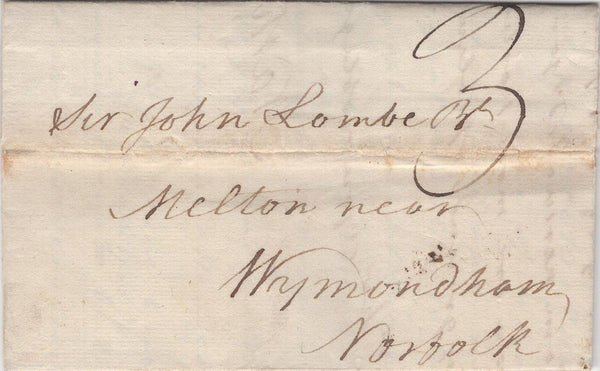 3
Sir John Lombe Bt
Melton near
Wymondham
Norfolk